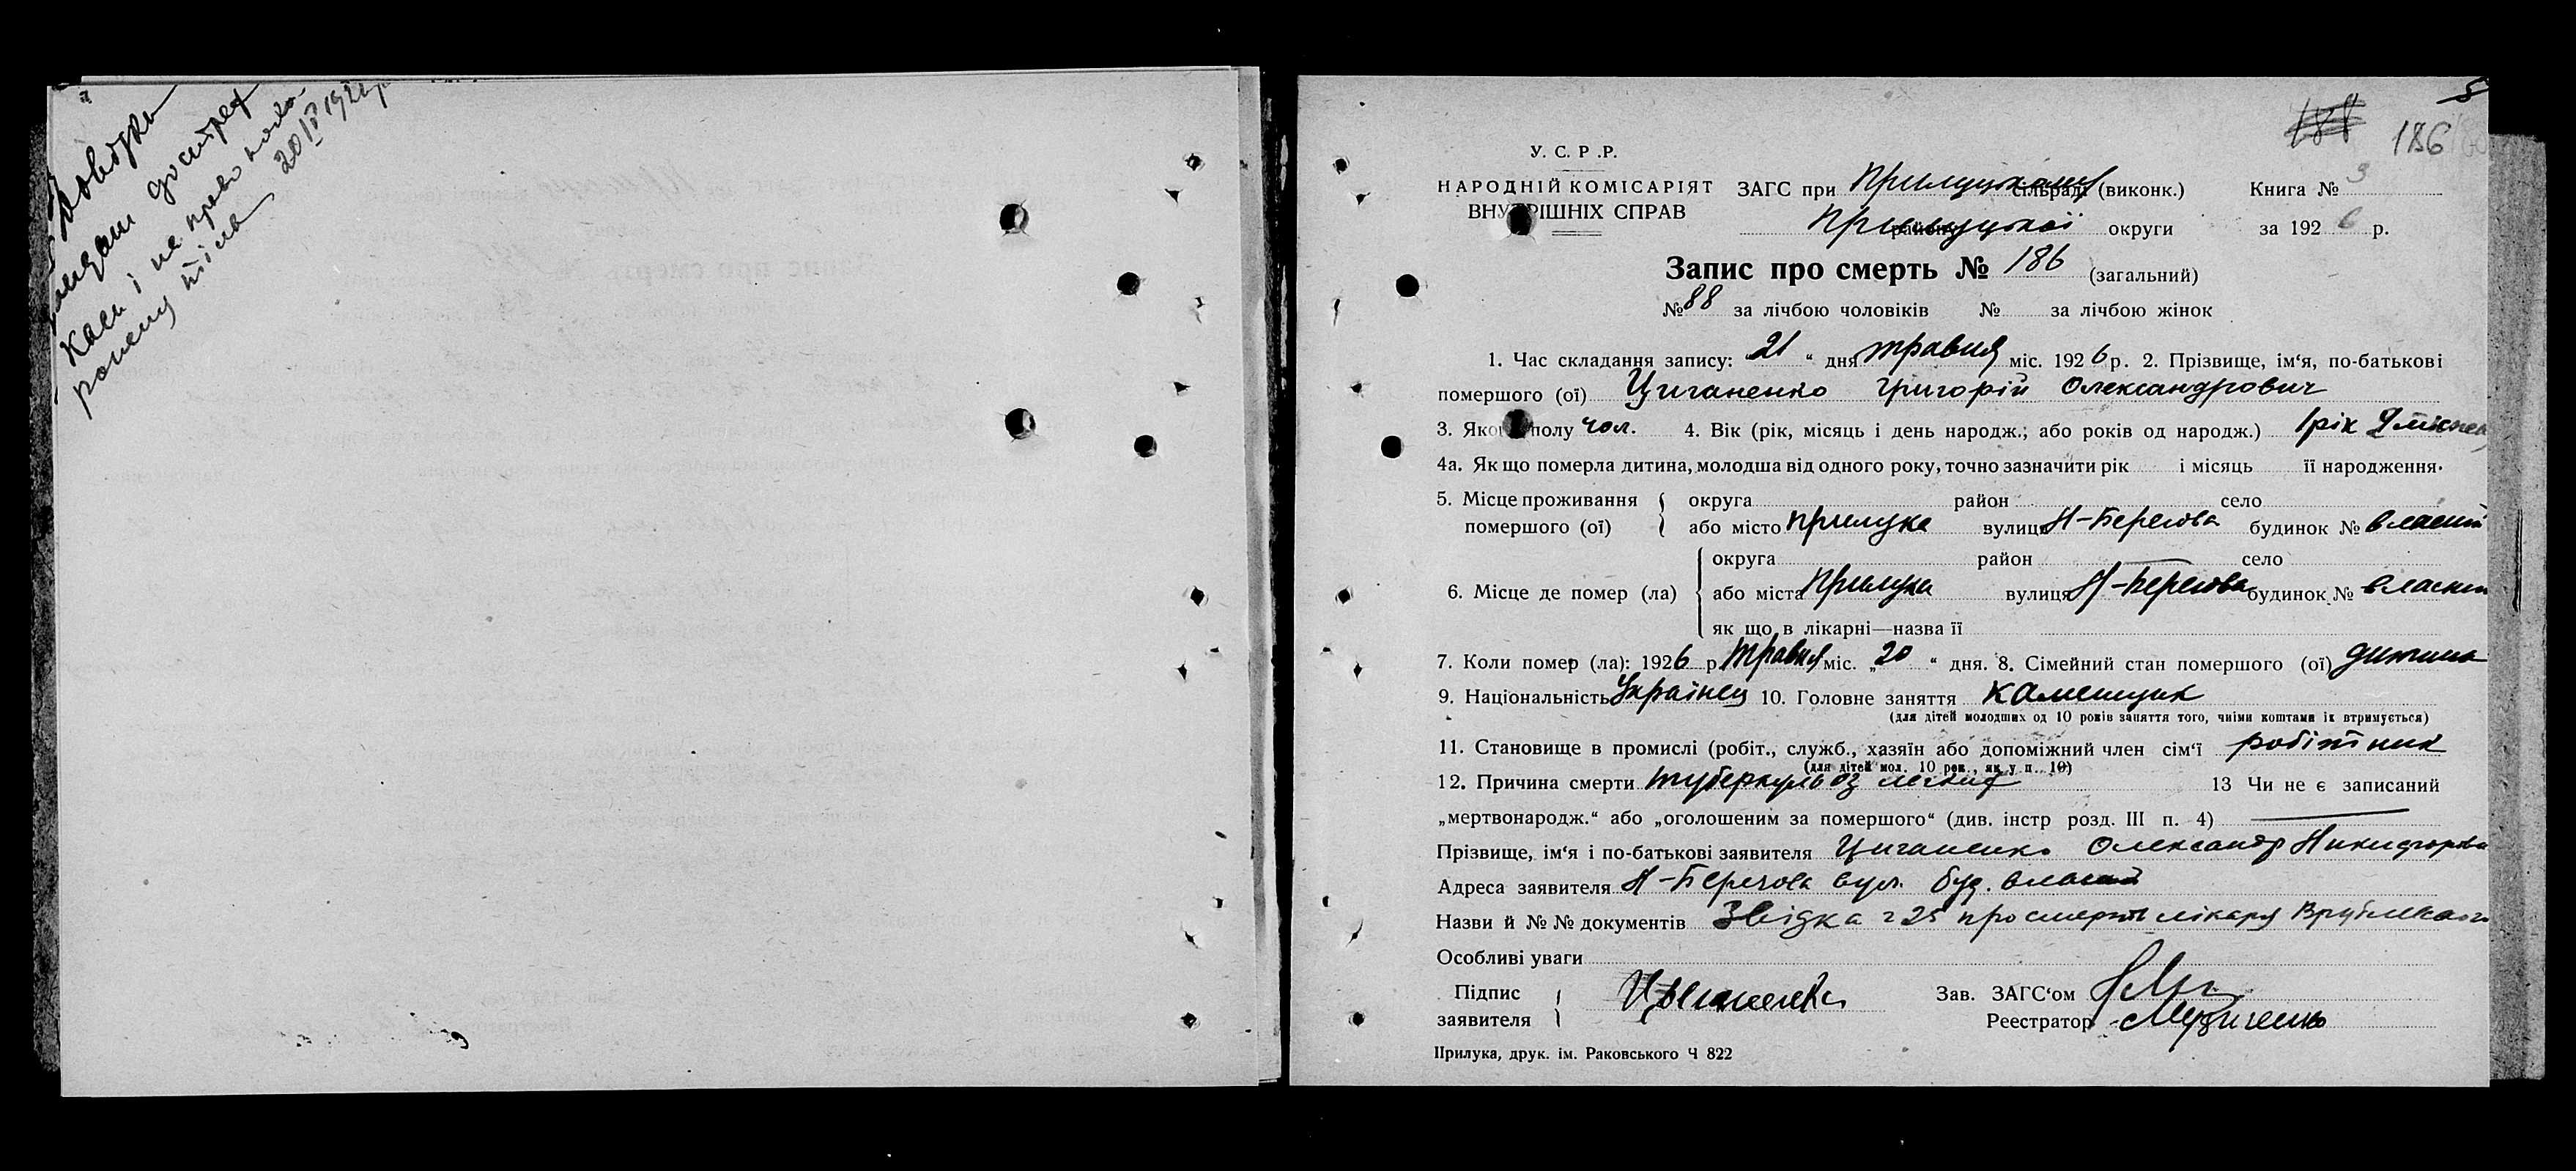 Довідки
видані достраx
каси і на право похо-
рошену тіла 20/V 1926 р
5
188
186
У. С. Р. Р.
НАРОДНІЙ КОМІСАРІЯТ
ВНУТРІШНІХ СПРАВ
ЗАГС при Прилуцькому сільраді (виконк.)
Прилуцької округи
Книга № 3
за 1926 р.
Запис про смерть № 186 (загальний)
№ 88 за лічбою чоловіків № за лічбою жінок
1. Час складання запису: 21 “ дня травня міс. 1926 р. 2. Прізвище, ім‘я, по-батькові
помершого (ої) Циганенко Григорій Олександрович
3. Якого полу чол. 4. Вік (рік, місяць і день народж.; або років од народж.) 1 рік
4а. Як що померла дитина, молодша від одного року, точно зазначити рік і місяць її народження.
5. Місце проживання помершого (ої) округа район село
або місто Прилука вулиця Н-Берегова будинок № власний
6. Місце де помер (ла) округа район село
або міста Прилука вулиця Н-Берегова будинок № власний
як що в лікарні—назва її
7. Коли помер (ла): 1926 р. травня міс. „20“ дня. 8. Сімейний стан помершого (ої) дитина
9. Національність Українець 10. Головне заняття каменщик
(для дітей молодших од 10 років заняття того, чиїми коштами їх втримується)
11. Становище в промислі (робіт., служб., хазяїн або допоміжний член сім‘ї робітник
(для дітей мол. 10 рок., як у п. 10)
12. Причина смерти туберкульоз легких 13 Чи не є записаний
„мертвонародж.“ або „оголошеним за помершого“ (див. інстр розд. III п. 4)
Прізвище, ім‘я і по-батькові заявителя Циганенко Олександр Никифорова
Адреса заявителя Н-Берегова вул. буд. власний
Назви й № № документів Звідка ч 25 про смерть лікаря Врублевського
Особливі уваги
Підпис заявителя Циганенко
Зав. ЗАГС‘ом
Реестратор
Прилука, друк. ім. Раковського Ч 822